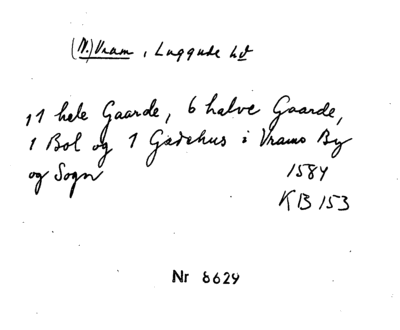 (N.) Vram, Luggude Hd
11 hele Gaarde, 6 halve Gaarde,
1 Bol og 1 Gadehus i Vrams By
og Sogn 1584
KB 153
Nr 8629